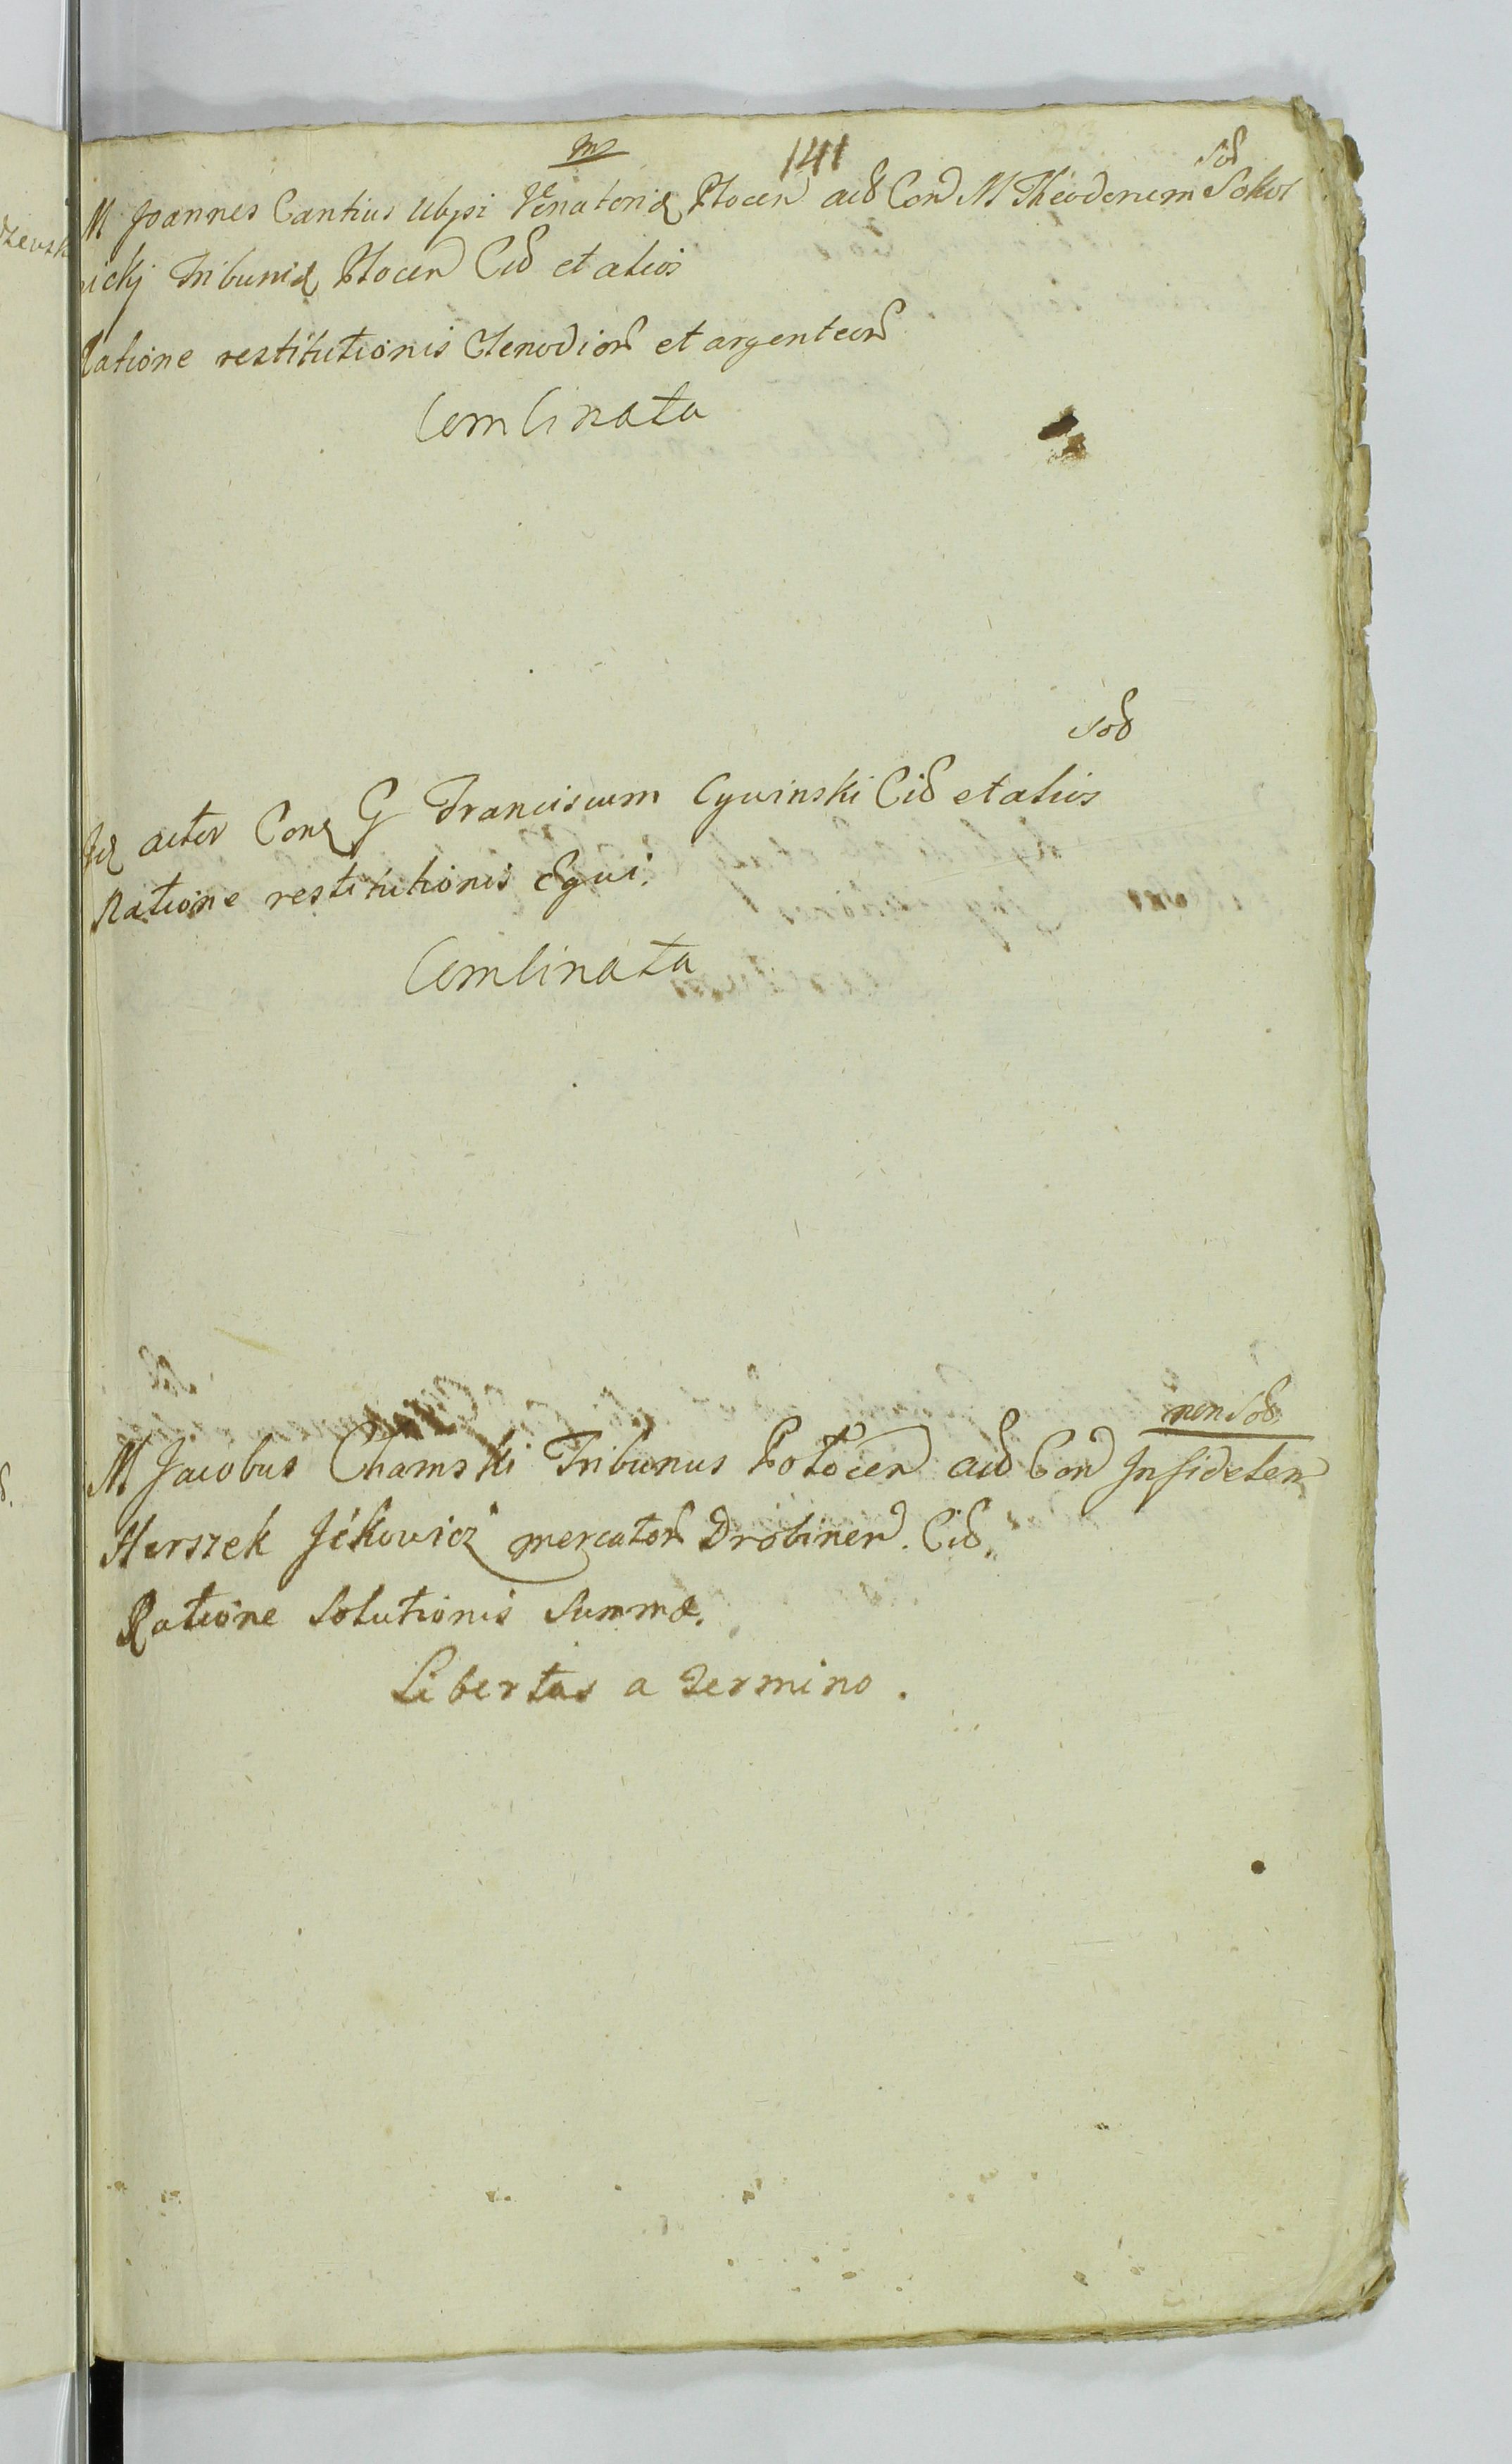 m
141
Sod
M Joannes Cantius Ubysi Venatorid Plocen acd Con M Theodorum Sokol
nickj Tribunid Plocen Cid et alios
Ratione restitutionis Clenodior et argenteor
Combinata
Sod
Id actor Con G Franciscum Cywinski Cid et alios
Ratione restitutionis Equi.
Combinata
non Sod
M Jacobus Chamski Tribunus Potocen acd Con Infidelem
Herszek Jckowicz mercator Drobinen. Cid.
Ratione Solutionis Summæ.
Libertas a Termino.